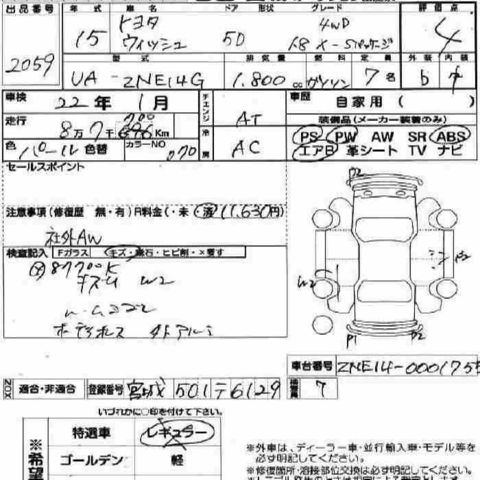 出品番号 年式 トヨタ ドア 形状 グレード 4WD 評価点
2059 15 ウィッシュ 5D 1.8 X-Sパッケージ 4
型式 排気量 燃料 定員 外装 内装
UA-ZNE14G 1,800cc ガソリン 7名 b
車検 22年1月 チェンジ AT 車歴 自家用( )
走行 8万7千 700 Km 装備品(メーカー装着のみ)
PS PW AW SR ABS
色 パール 色替 カラーNO 070 冷房 AC エアB 革シート TV ナビ
セールスポイント
注意事項(修復歴 無・有)R料金(・未 済 11,630円)
社外AW
検査記入 Fガラス キズ・飛石・ヒビ割・×要す
87700K
キズ W2
P2
W2
P1 P2
車台番号 ZNE14-0001755
NOX 適合・非適合 登録番号 宮城 501 テ 6129 7
いづれかに○印を付けて下さい。
※希望 特選車 レギュラー
ゴールデン 軽
※外車は、ディーラー車・並行輸入車・モデル等を
必ず明記してください。
※修復箇所・溶接部位交換は必ず明記してください。